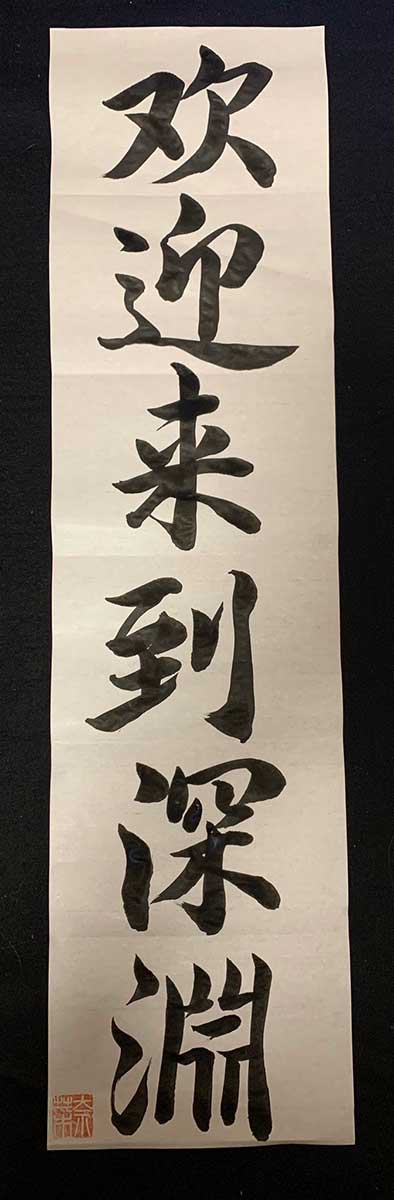 欢迎来到深淵